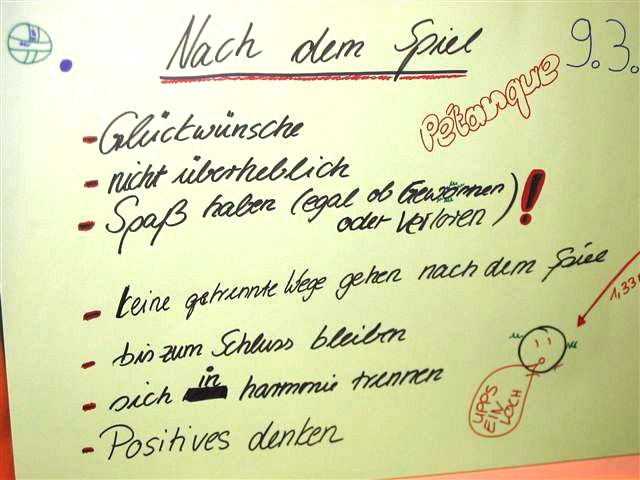 Nach dem Spiel
9.3.
Pétanque
- Glückwünsche
- nicht überheblich
- Spaß haben (egal ob Gewonnen
oder verloren)!
- keine getrennte Wege gehen nach dem Spiel
- bis zum Schluss bleiben
- sich in harmonie trennen
- Positives denken
UPPS
EIN
LOCH